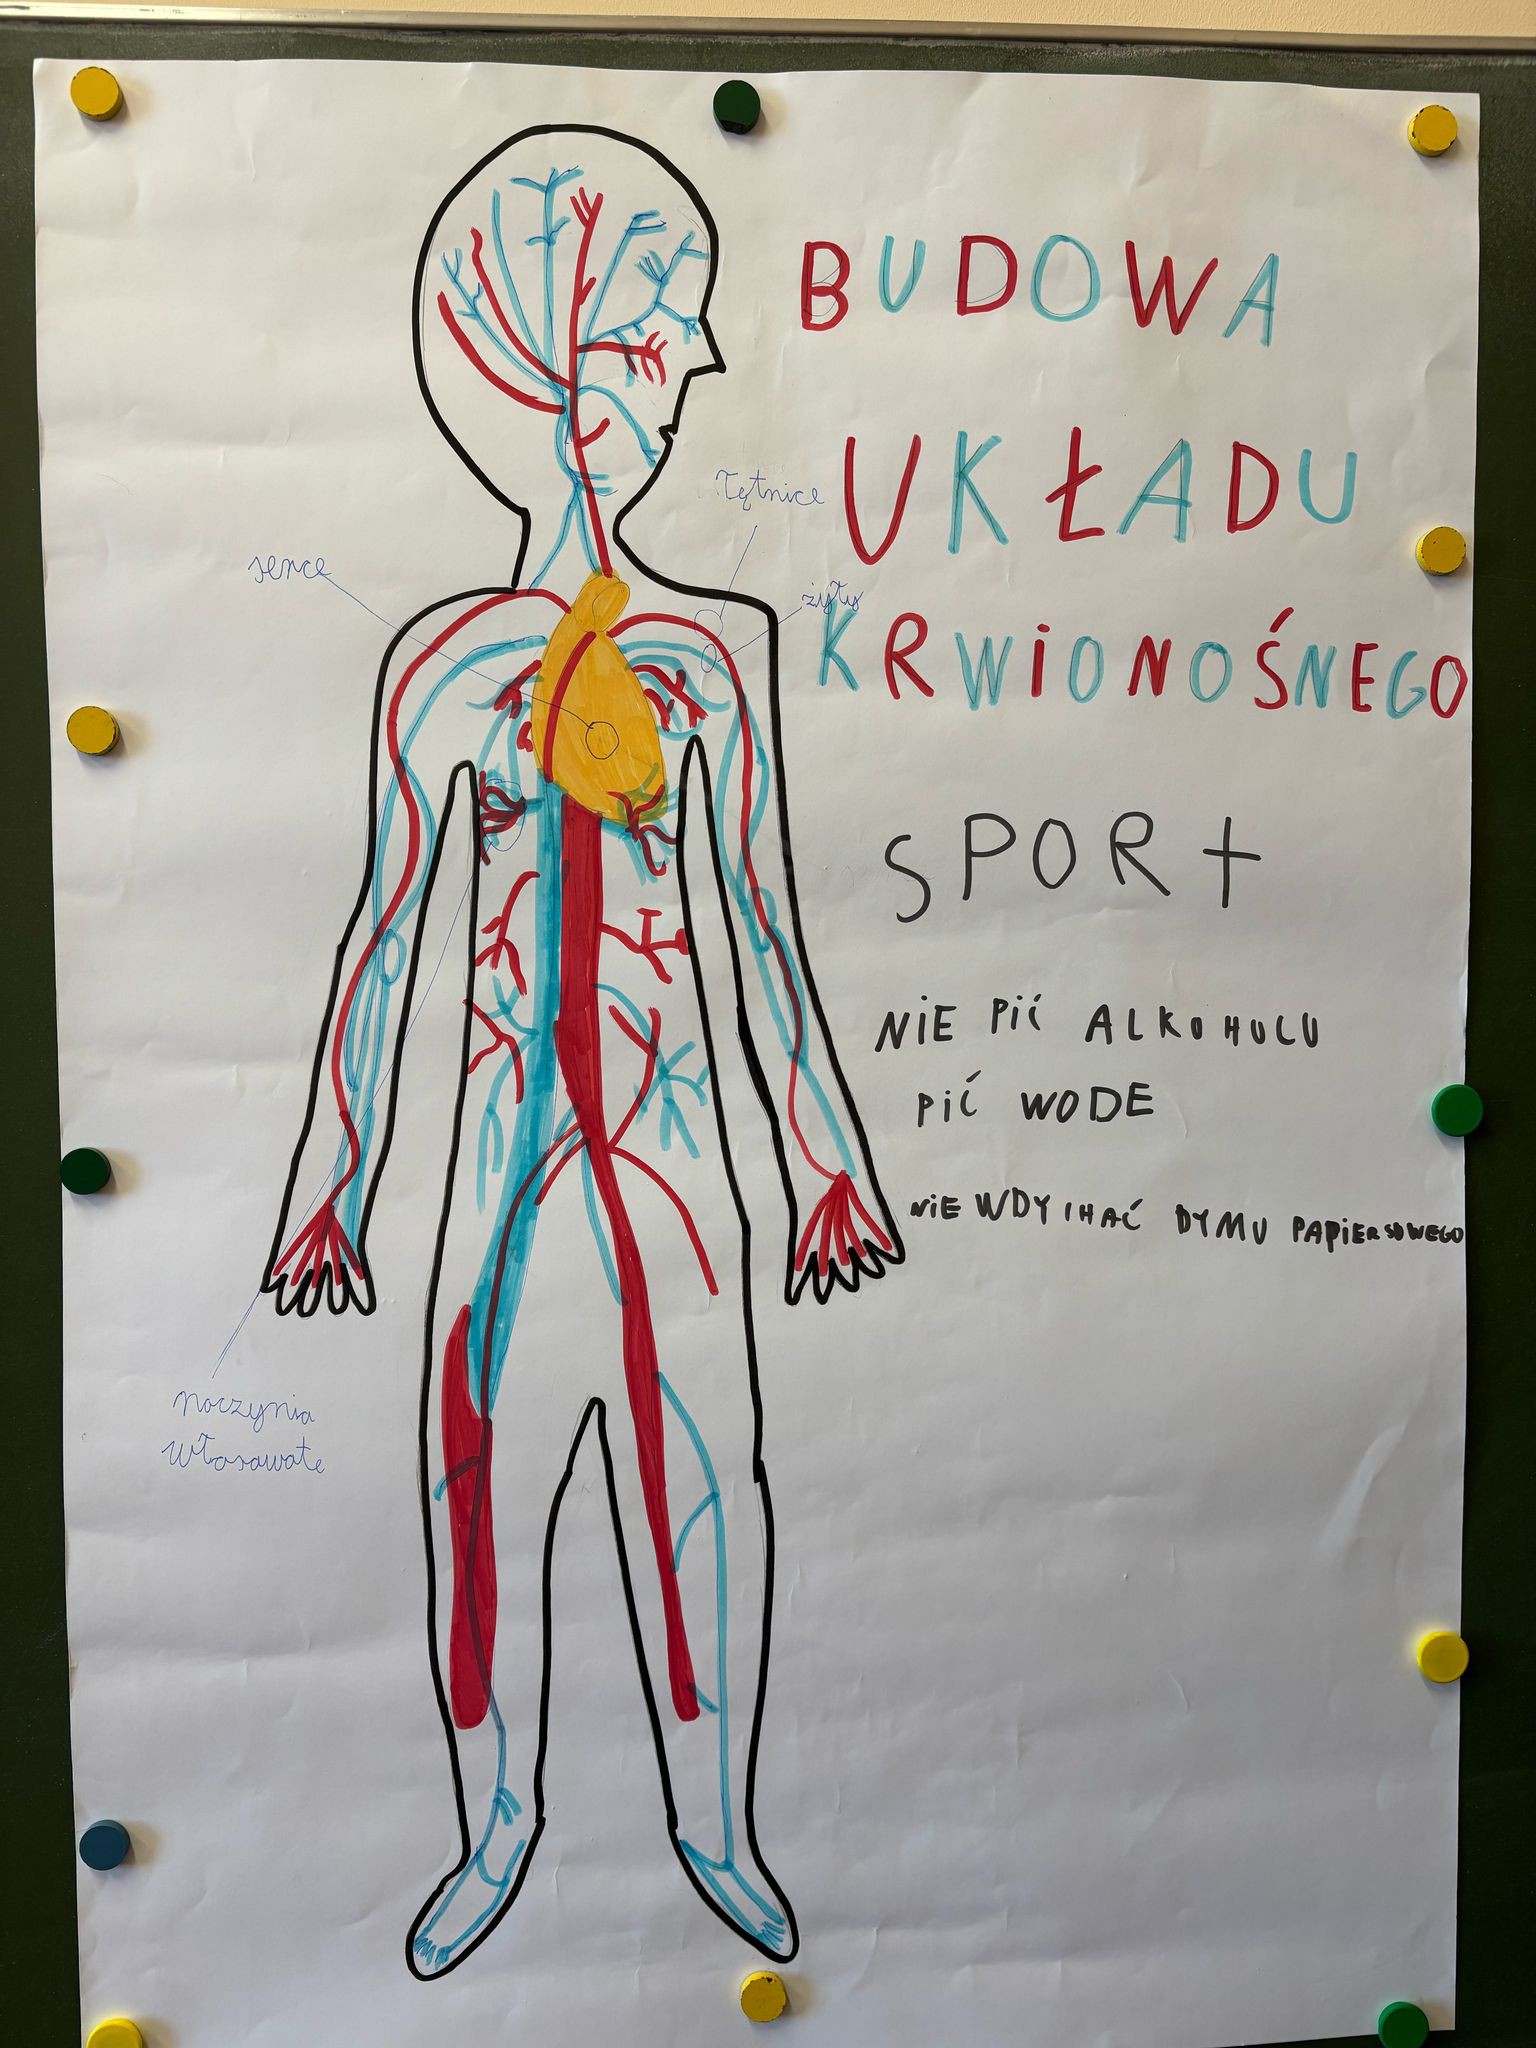 BUDOWA
UKŁADU
KRWIONOŚNEGO
Tętnice
serce
żyły
SPORt
NIE PIĆ ALKOHOLU
PIĆ WODE
NIE WDYCHAĆ DYMU PAPIEROSOWEGO
naczynia
włosowate